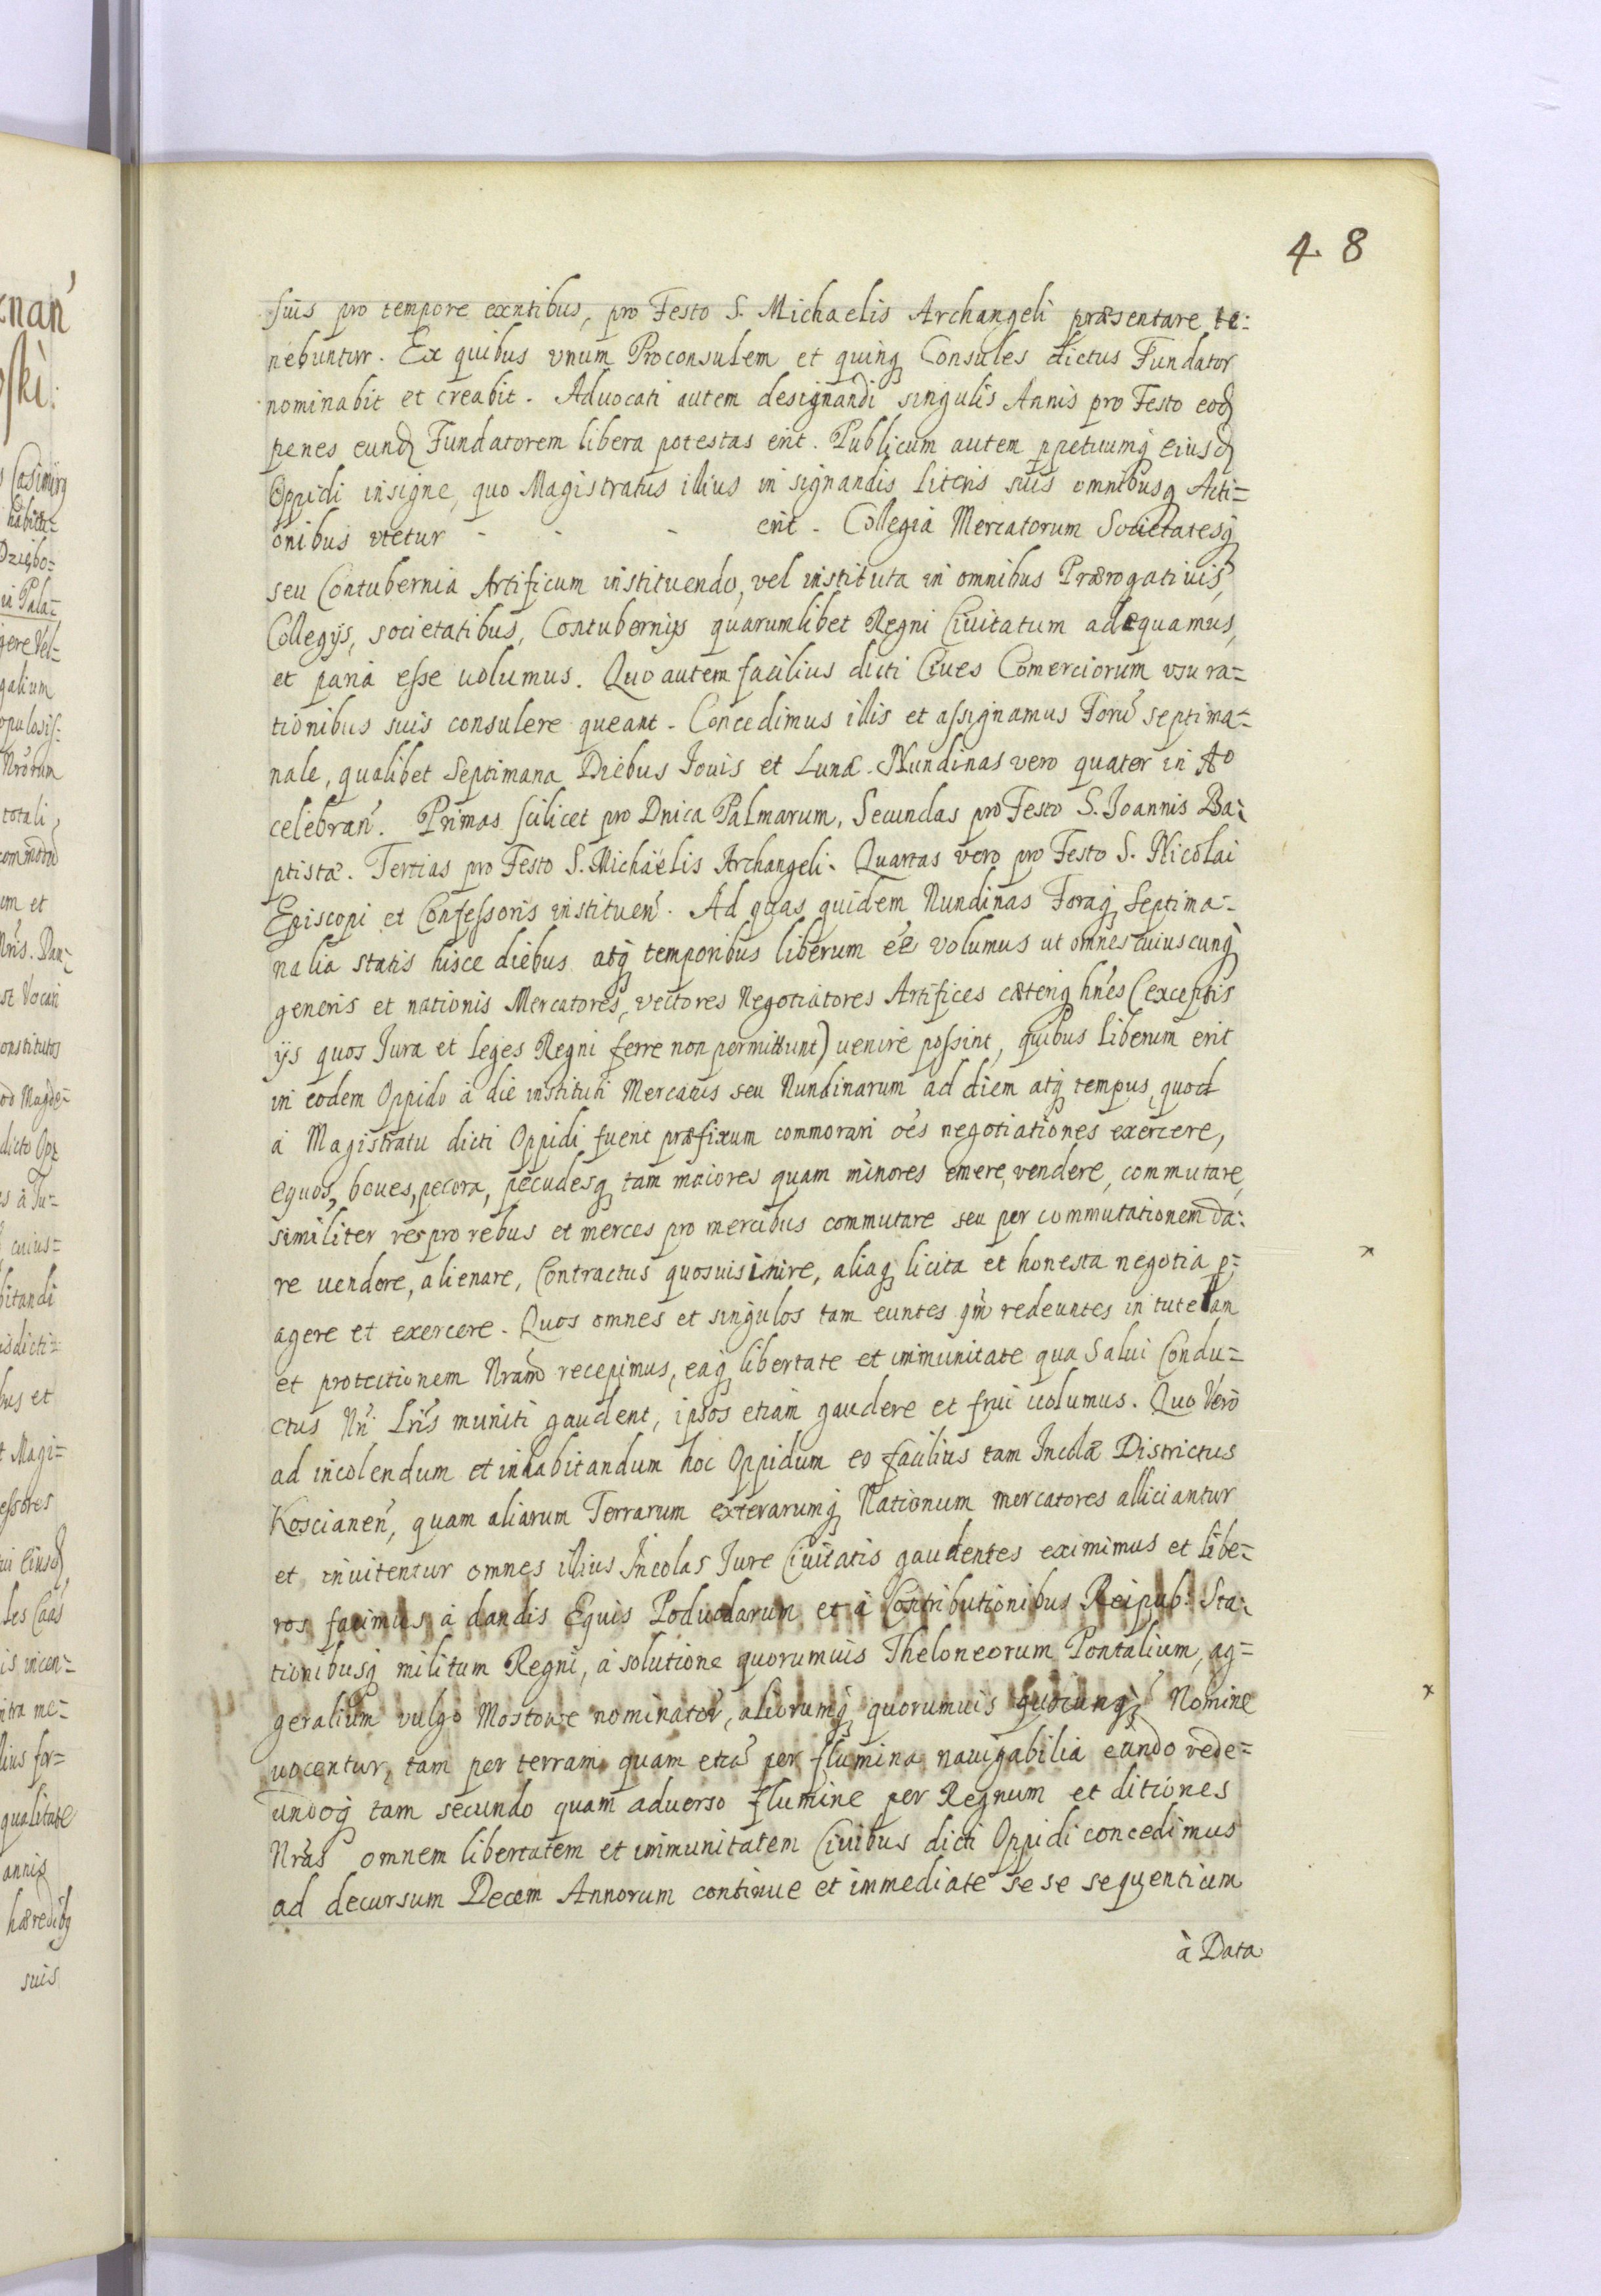 48
suis pro tempore exntibus, pro Festo S. Michaelis Archangeli præsentare te:
nebuntur. Ex quibus vnum Proconsulem et quinq Consules dictus Fundator
nominabit et creabit. Aduocati autem designandi singulis Annis pro Festo eod
penes eund Fundatorem libera potestas erit. Publicum autem ppetuumq eiusd
Oppidi insigne, quo Magistratus illius in signandis literis suis omnibusq Acti=
onibus vtetur - - - erit - Collegia Mercatorum Societatesq
seu Contubernia Artificum instituendo, vel instituta in omnibus Prærogatiuis,
Collegijs, societatibus, Contubernijs quarumlibet Regni Ciuitatum adæquamus,
et paria esse uolumus. Quo autem facilius dicti Ciues Comerciorum vsu ra=
tionibus suis consulere queant - Concedimus illis et assignamus Forũ septima=
nale, qualibet Septimana Diebus Iouis et Lunæ. Nundinas vero quater in Ao
celebran̄. Primas scilicet pro Dnica Palmarum, Secundas pro Festo S. Joannis Ba:
ptistæ. Tertias pro Festo S. Michäelis Archangeli. Quartas vero pro Festo S. Nicolai
Episcopi et Confessoris instituen̄. Ad quas quidem Nundinas Foraq Septima=
nalia statis hisce diebus atq temporibus liberum eē volumus ut omnes cuiuscunq
generis et nationis Mercatores, vectores Negotiatores Artifices cæteriq hñes (exceptis
ijs quos Jura et leges Regni ferre non permittunt) uenire possint, quibus liberum erit
in eodem Oppido à die instituti Mercatus seu Nundinarum ad diem atq tempus, quod
à Magistratu dicti Oppidi fuerit præfixum commorari oēs negotiationes exercere,
equos, boues, pecora, pecudesq tam maiores quam minores emere, vendere, commutare,
similiter res pro rebus et merces pro mercibus commutare seu per commutationem da:
re uendere, alienare, Contractus quosuis inire, aliaq licita et honesta negotia p:
agere et exercere. Quos omnes et singulos tam euntes qm̄ redeuntes in tutelam
et protectionem Nram̄ recepimus, eaq libertate et immunitate qua Salui Condu=
ctus Nrī Lrīs muniti gaudent, ipsos etiam gaudere et frui uolumus. Quo Verò
ad incolendum et inhabitandum hoc Oppidum eo facilius tam Incolæ Districtus
Koscianen̄, quam aliarum Terrarum exterarumq Nationum mercatores alliciantur
et inuitentur omnes illius Incolas Jure Ciuitatis gaudentes eximimus et libe=
ros facimus à dandis Equis Poduodarum et à Contributionibus Reipub: Sta:
tionibusq militum Regni, à solutione quorumuis Theloneorum Pontalium, ag=
geralium vulgo Mostowe nominator̄, aliorumq quorumuis quocunq Nomine
uocentur, tam per terram quam etiā per flumina nauigabilia eundo rede=
undoq tam secundo quam aduerso flumine per Regnum et ditiones
Nrās omnem libertatem et immunitatem Ciuibus dicti Oppidi concedimus
ad decursum Decem Annorum continue et immediate se se sequentium
à Data